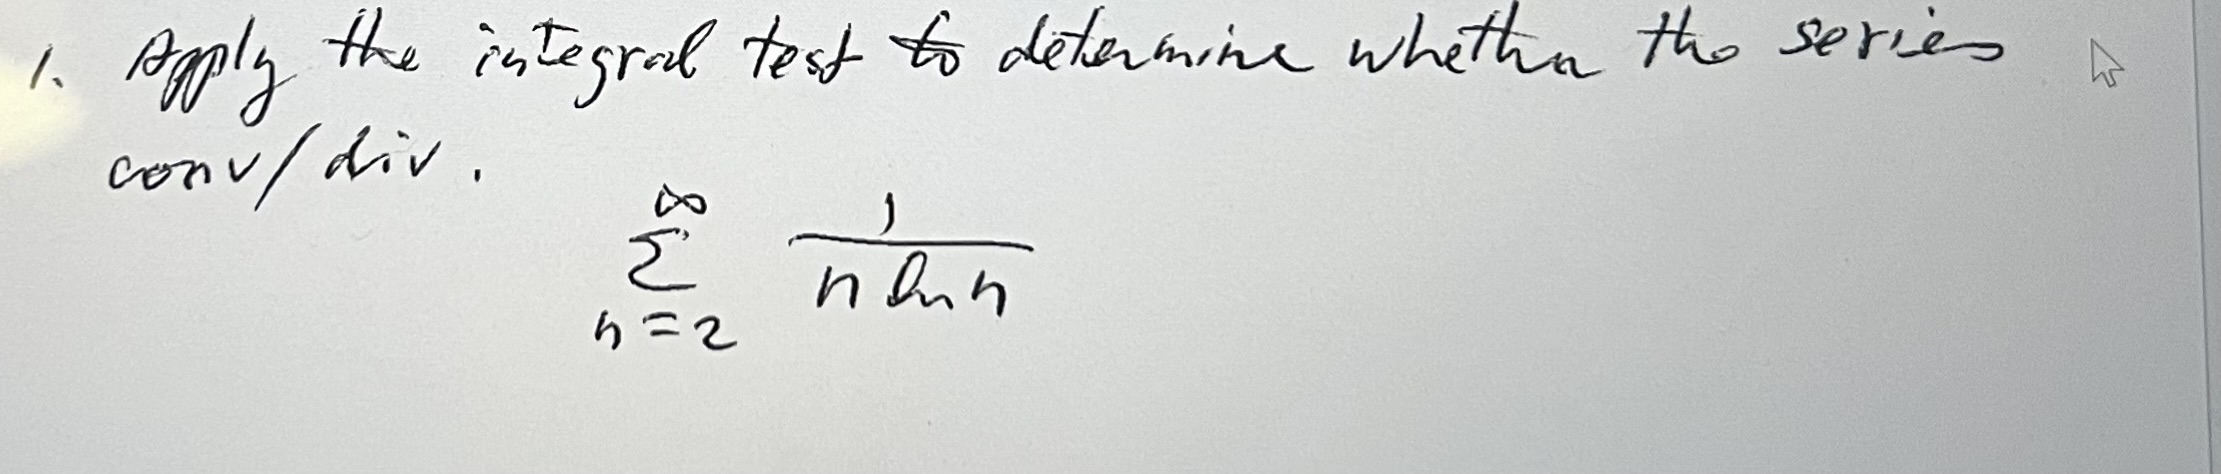 1. Apply the integral test to determine whether the series
conv/div.
∞
Σ 1/(n ln n)
n=2